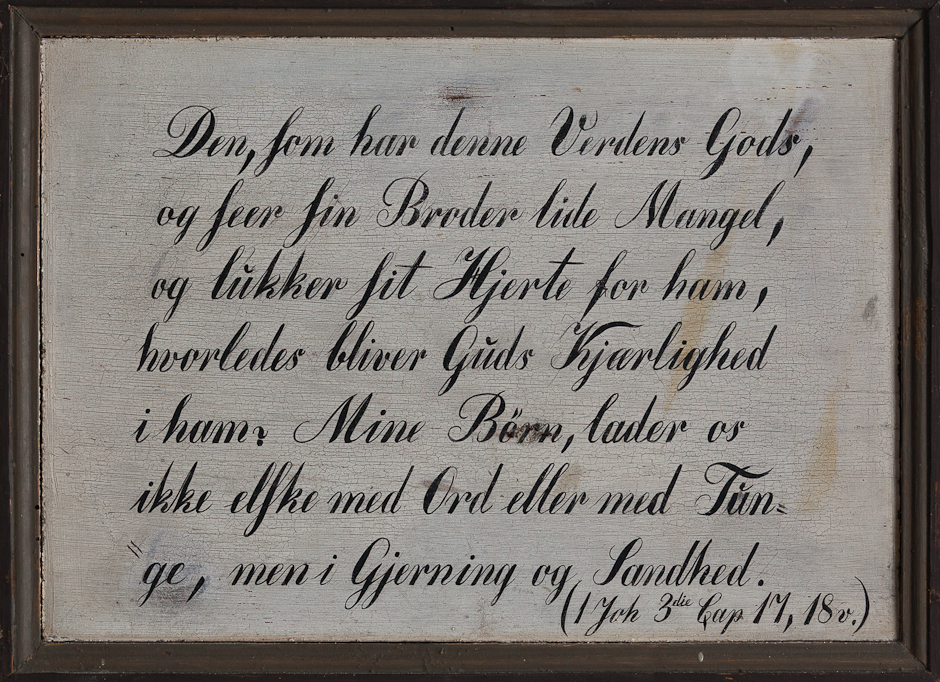 Den, som har denne Verdens Gods,
og seer sin Broder lide Mangel,
og lŭkker sit Hjerte for ham,
hvorledes bliver Gŭds Kjærlighed
i ham? Mine Börn, lader os
ikke elske med Ord eller med Tŭn=
"ge, men i Gjerning og Sandhed.
(1 Joh 3die Cap 17, 18 v.)